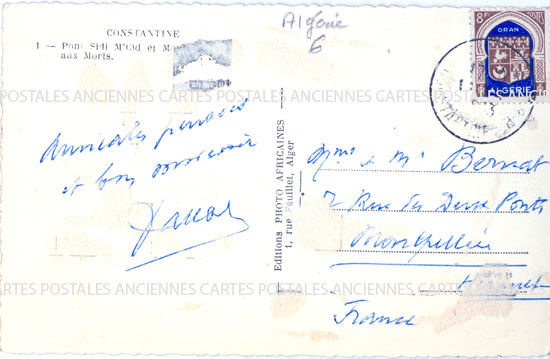 CONSTANTINE
1 — Pont Sidi M'Cid et Mo
aux Morts.
Algérie
6
8F
ORAN
ALGÉRIE
POSTES
CONSTANTINE
POSTALES ANCIENNES CARTES POSTALES ANCIENNES CARTES POSTALES ANCIENNES
Amicales pensées
et bon souvenir
Editions PHOTO AFRICAINES
1, rue Feuillet, Alger
Mme & Mr Bernat
2 Rue des Deux Ponts
Montpellier
Hérault
France
CARTES POSTALES ANCIENNES CARTES POSTALES ANCIENNES CARTES